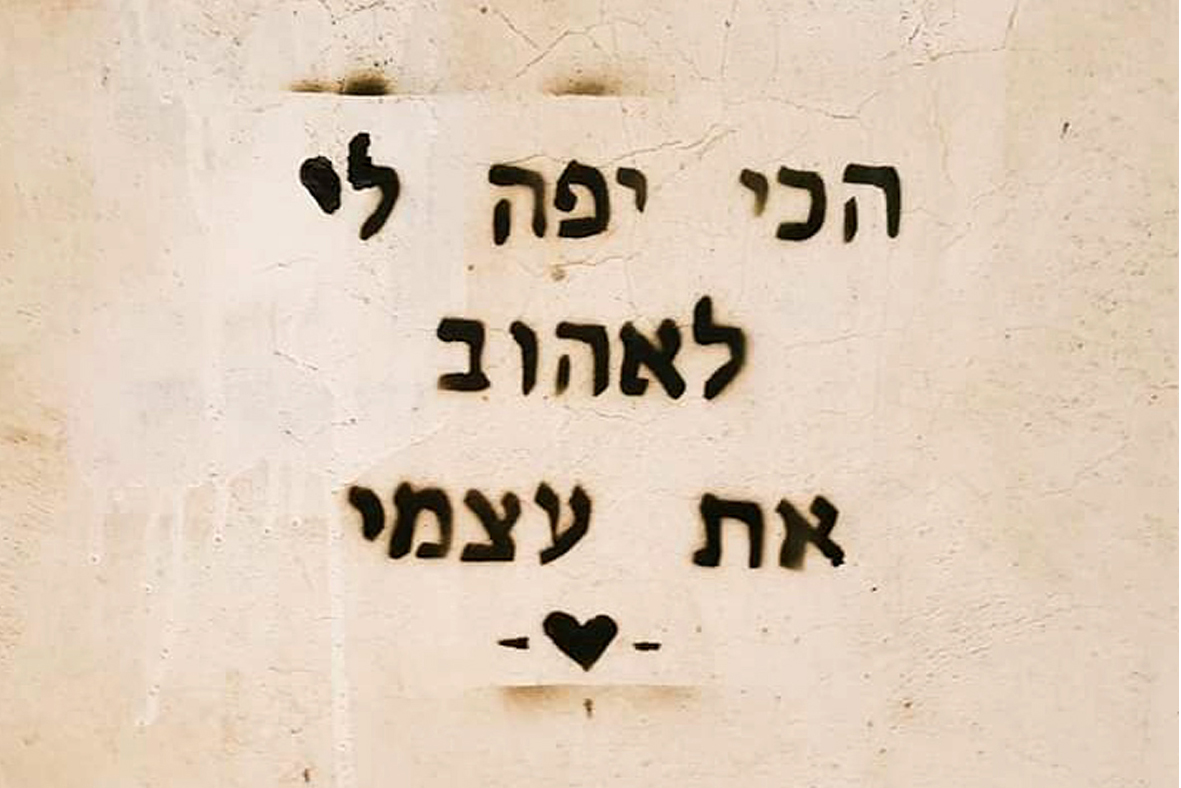 הכי יפה לי
לאהוב
את עצמי